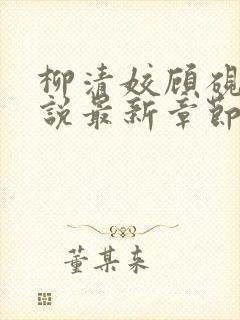 柳清姣顾砚
说最新章节
董某来